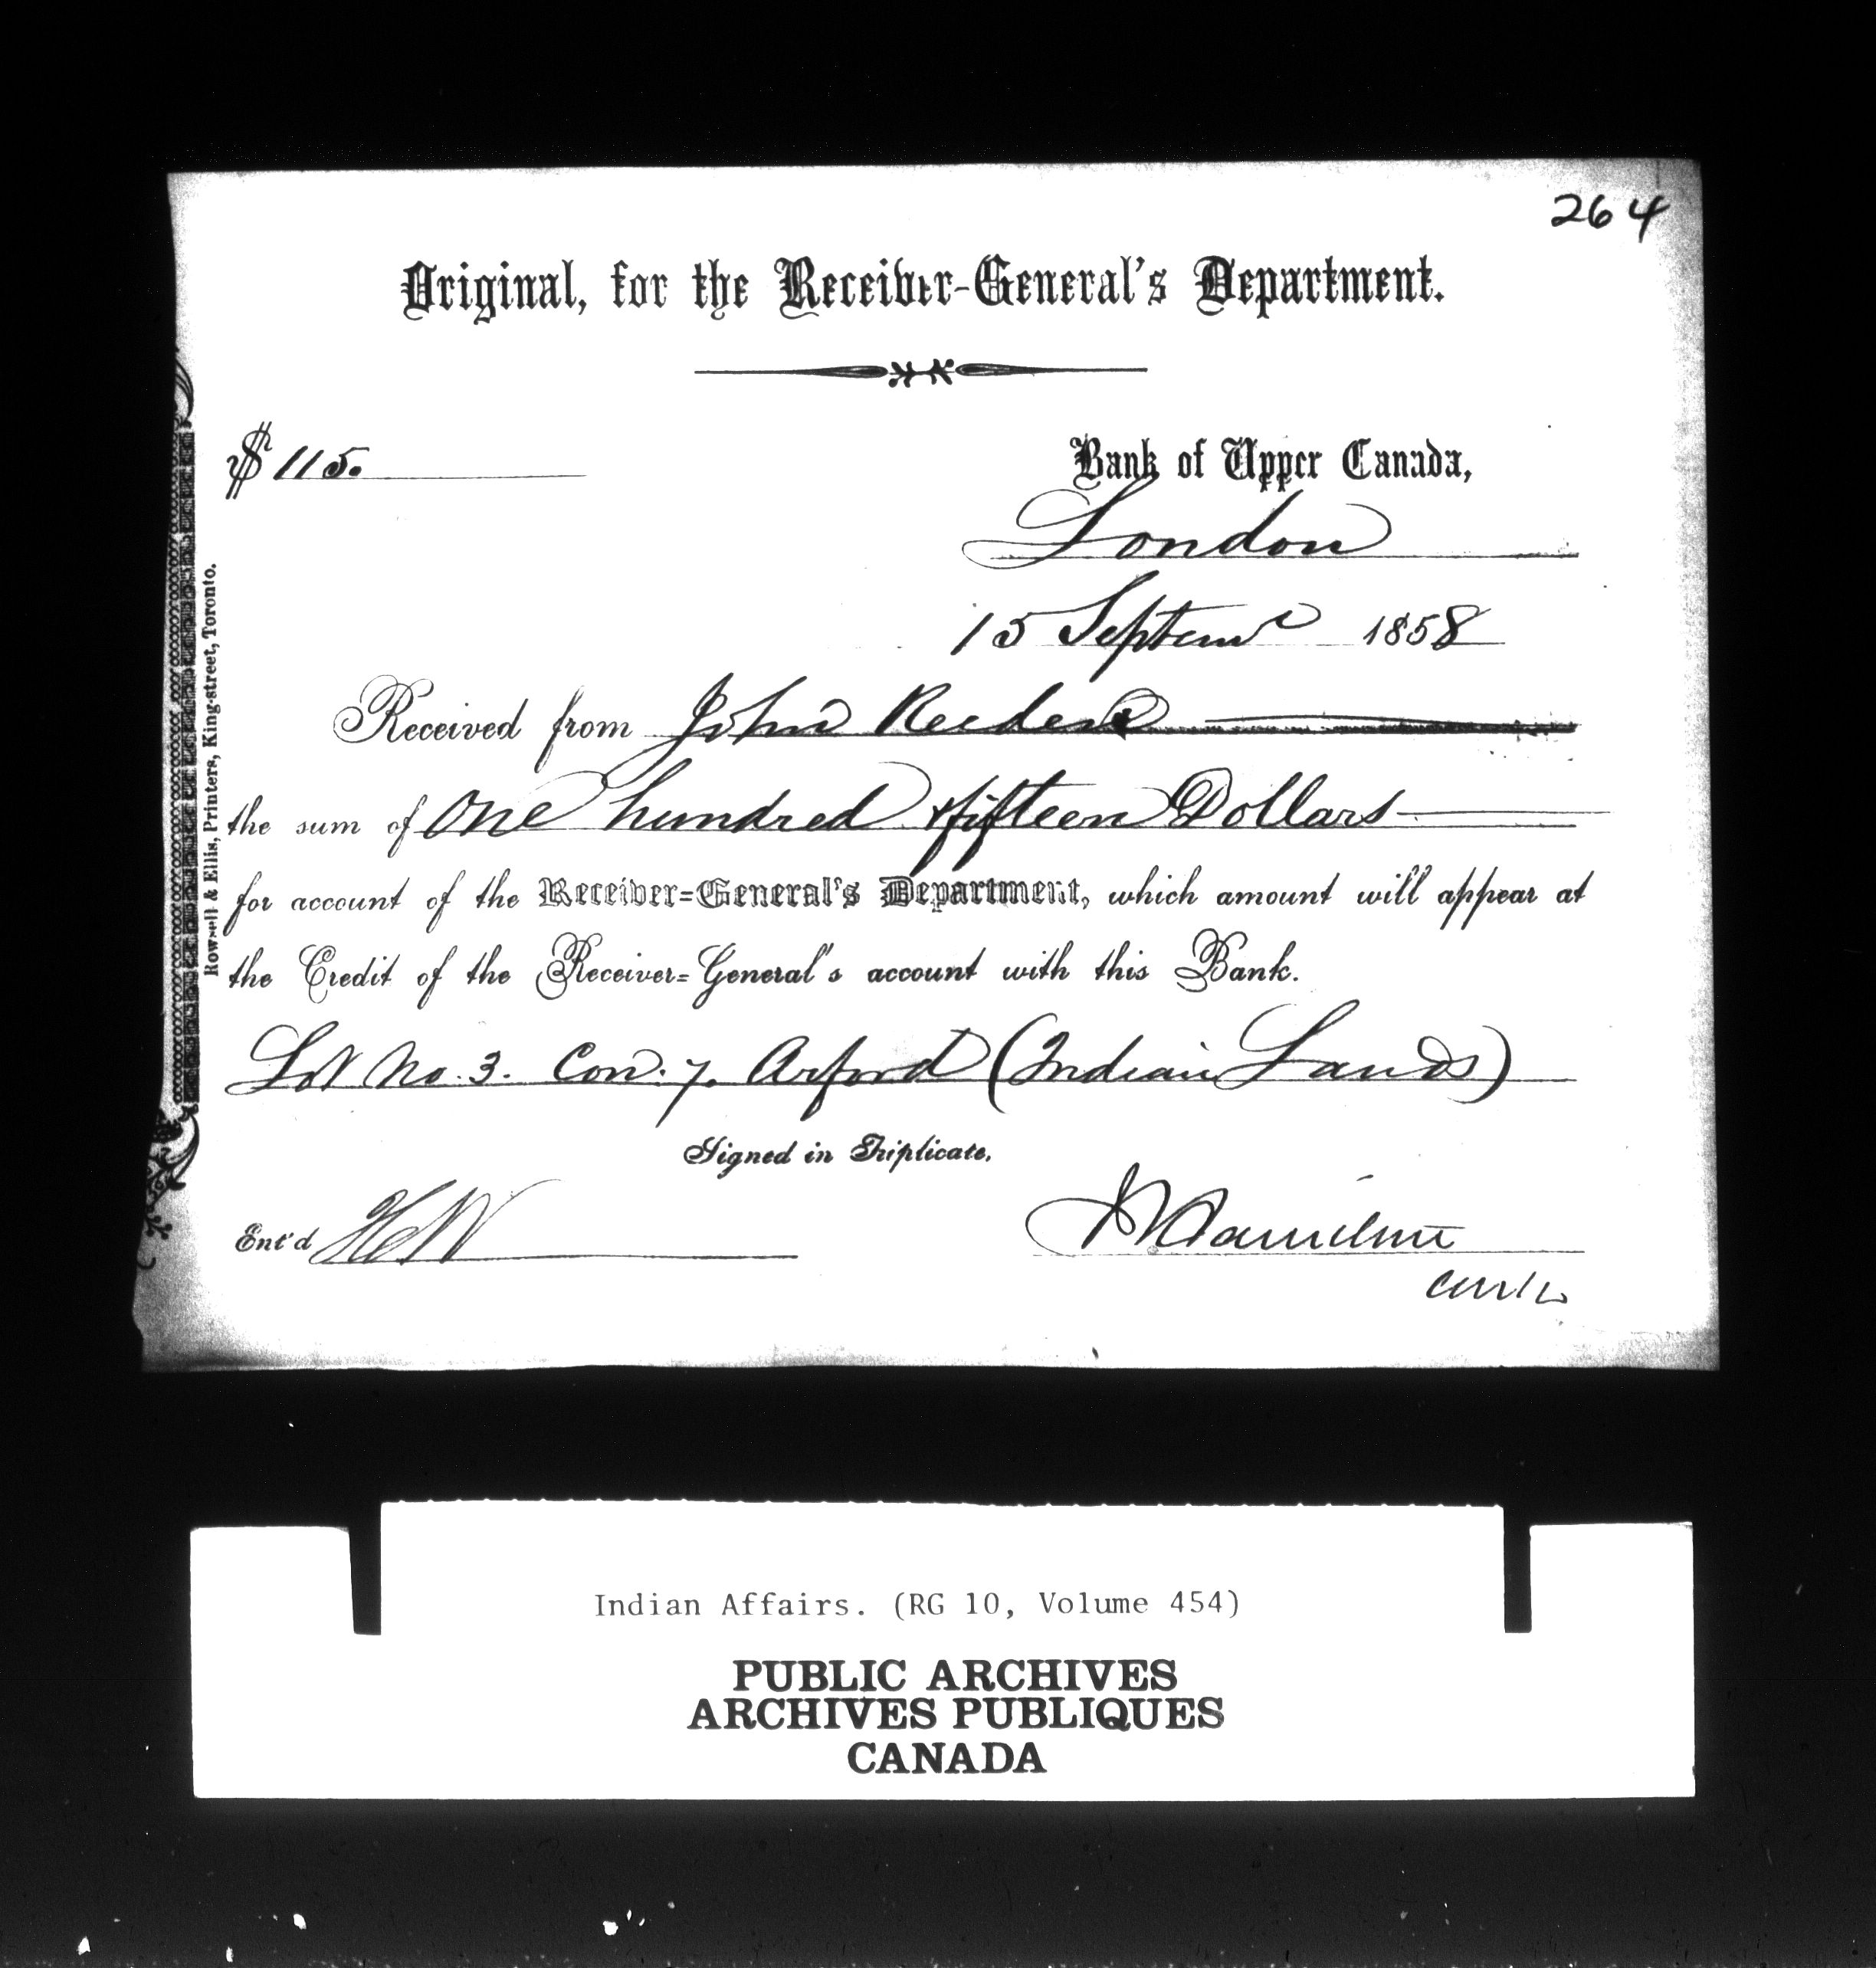 264
Original, for the Receiver-General's Department.
$ 115.
Bank of Upper Canada,
London
15 Septemr 1858
Received from John Reeder
the sum of One hundred & fifteen Dollars
for account of the Receiver=General's Department, which amount will appear at
the Credit of the Receiver=General's account with this Bank.
Lot No. 3. Con. 7. Arford (Indian Lands)
Signed in Triplicate,
Ent'd HW
Hamilton
Rowsell & Ellis, Printers, King-street, Toronto.
Indian Affairs. (RG 10, Volume 454)
PUBLIC ARCHIVES
ARCHIVES PUBLIQUES
CANADA